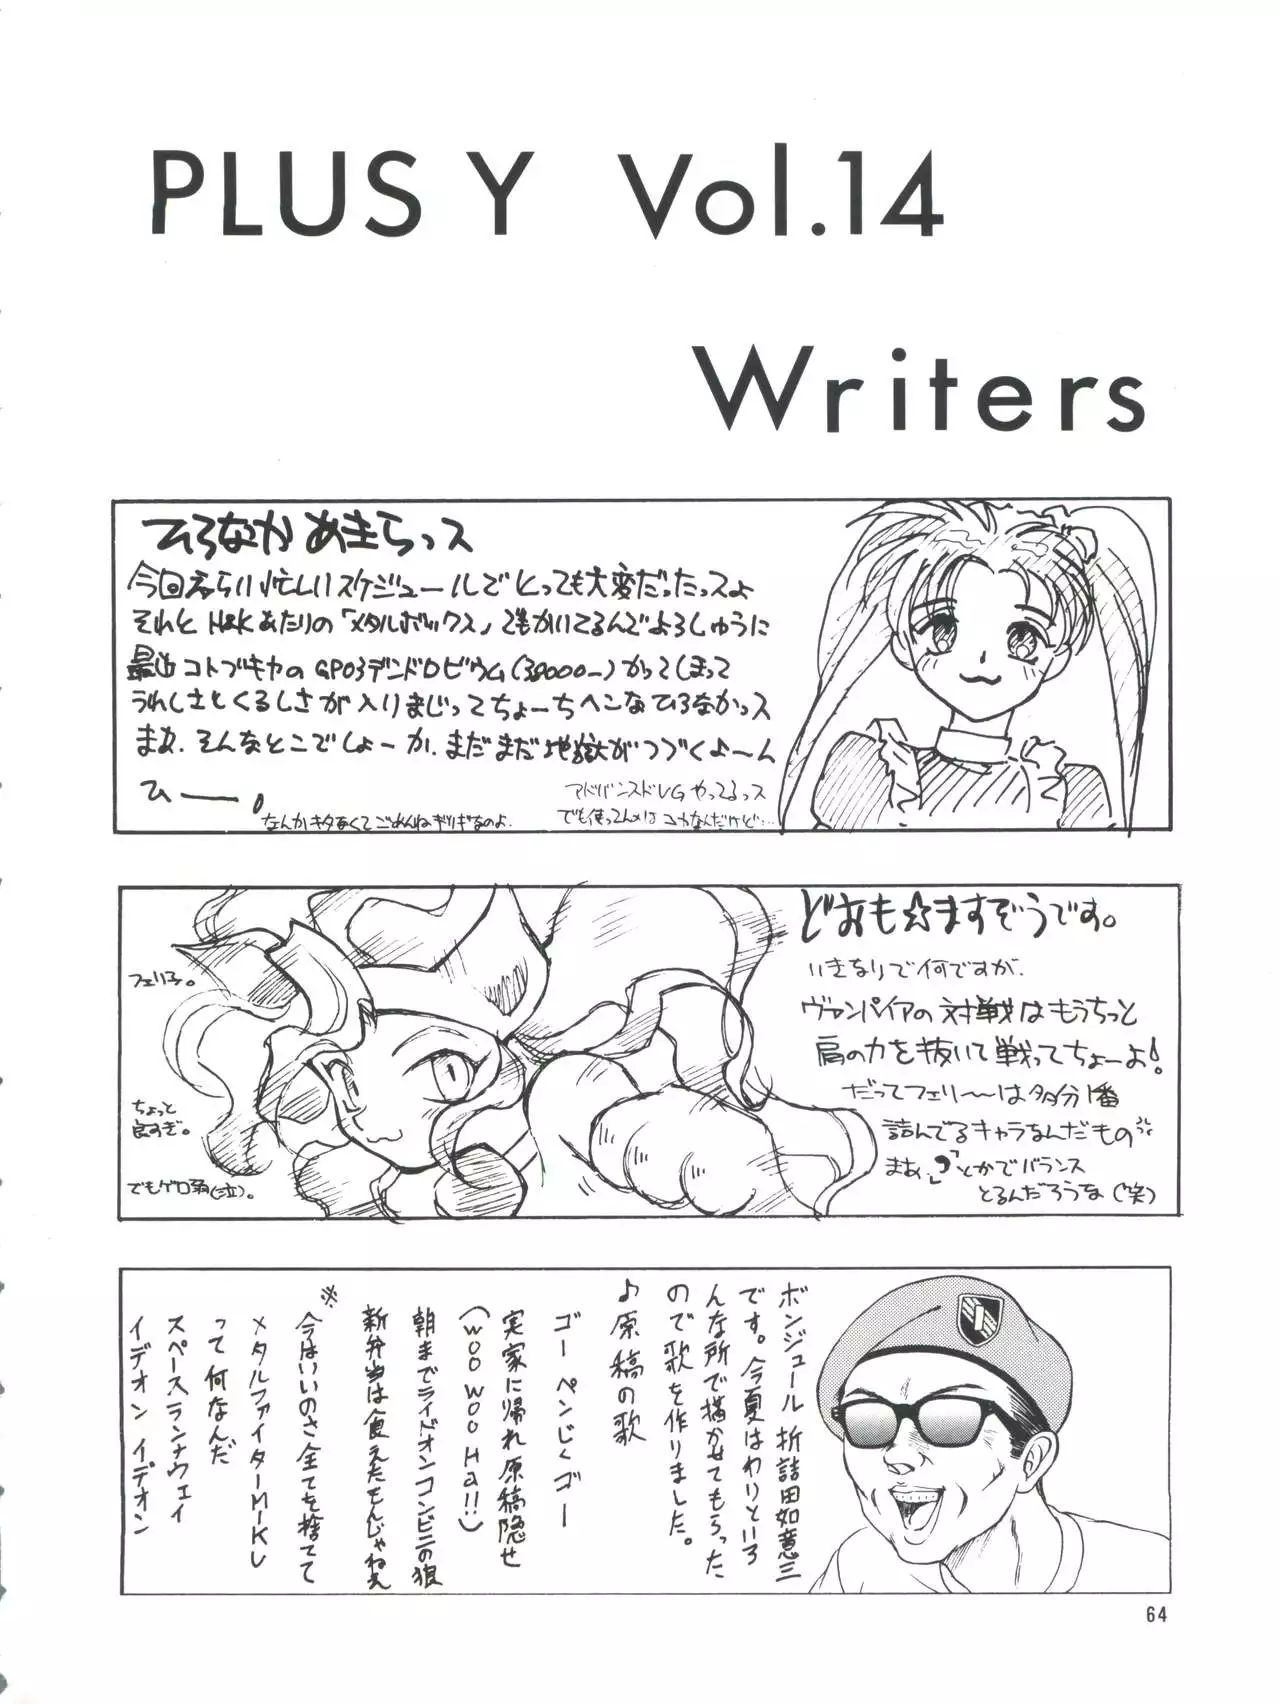 PLUS Y Vol.14
Writers
ひろなかあきらっス
今回えらい忙しいスケジュールでとっても大変だったっスよ
それと H&Kあたりの「メタルボックス」でもかいてるんでよろしゅうに
最近コトブキヤのGP03デンドロビウム(38000ー)かってしまって
うれしさとくるしさが入りまじってちょーちヘンなひろなかっス
まあ、そんなとこでしょーか、まだまだ地獄がつづくよ〜ん
ひ——。
なんかキタなくてごめんねギリギなのよ.
アドバンスドV.G やってるっス
でも使ってんメは コカなんだけど…
どおも☆ますぞうです。
いきなりで何ですが、
ヴァンパイアの対戦はもうちっと
肩の力を抜いて戦ってちょーよ!
だってフェリ〜〜は多分1番
詰んでるキャラなんだもの
まぁ、 とかでバランス
とるんだろうな(笑)
フェリ子。
ちょっと
良すぎ。
でもゲロ弱(泣)。
ボンジュール 折詰田如意三
です。今夏はわりといろ
んな所で描かせてもらった
ので歌を作りました。
♪原稿の歌
ゴー ペンじくゴー
実家に帰れ原稿隠せ
(WOO WOO Ha!!)
朝までライドオンコンビニの狼
新弁当は食えたもんじゃねえ
※
今はいいのさ全てを捨てて
メタルファイターMIKU
って何なんだ
スペースランナウェイ
イデオン イデオン
64